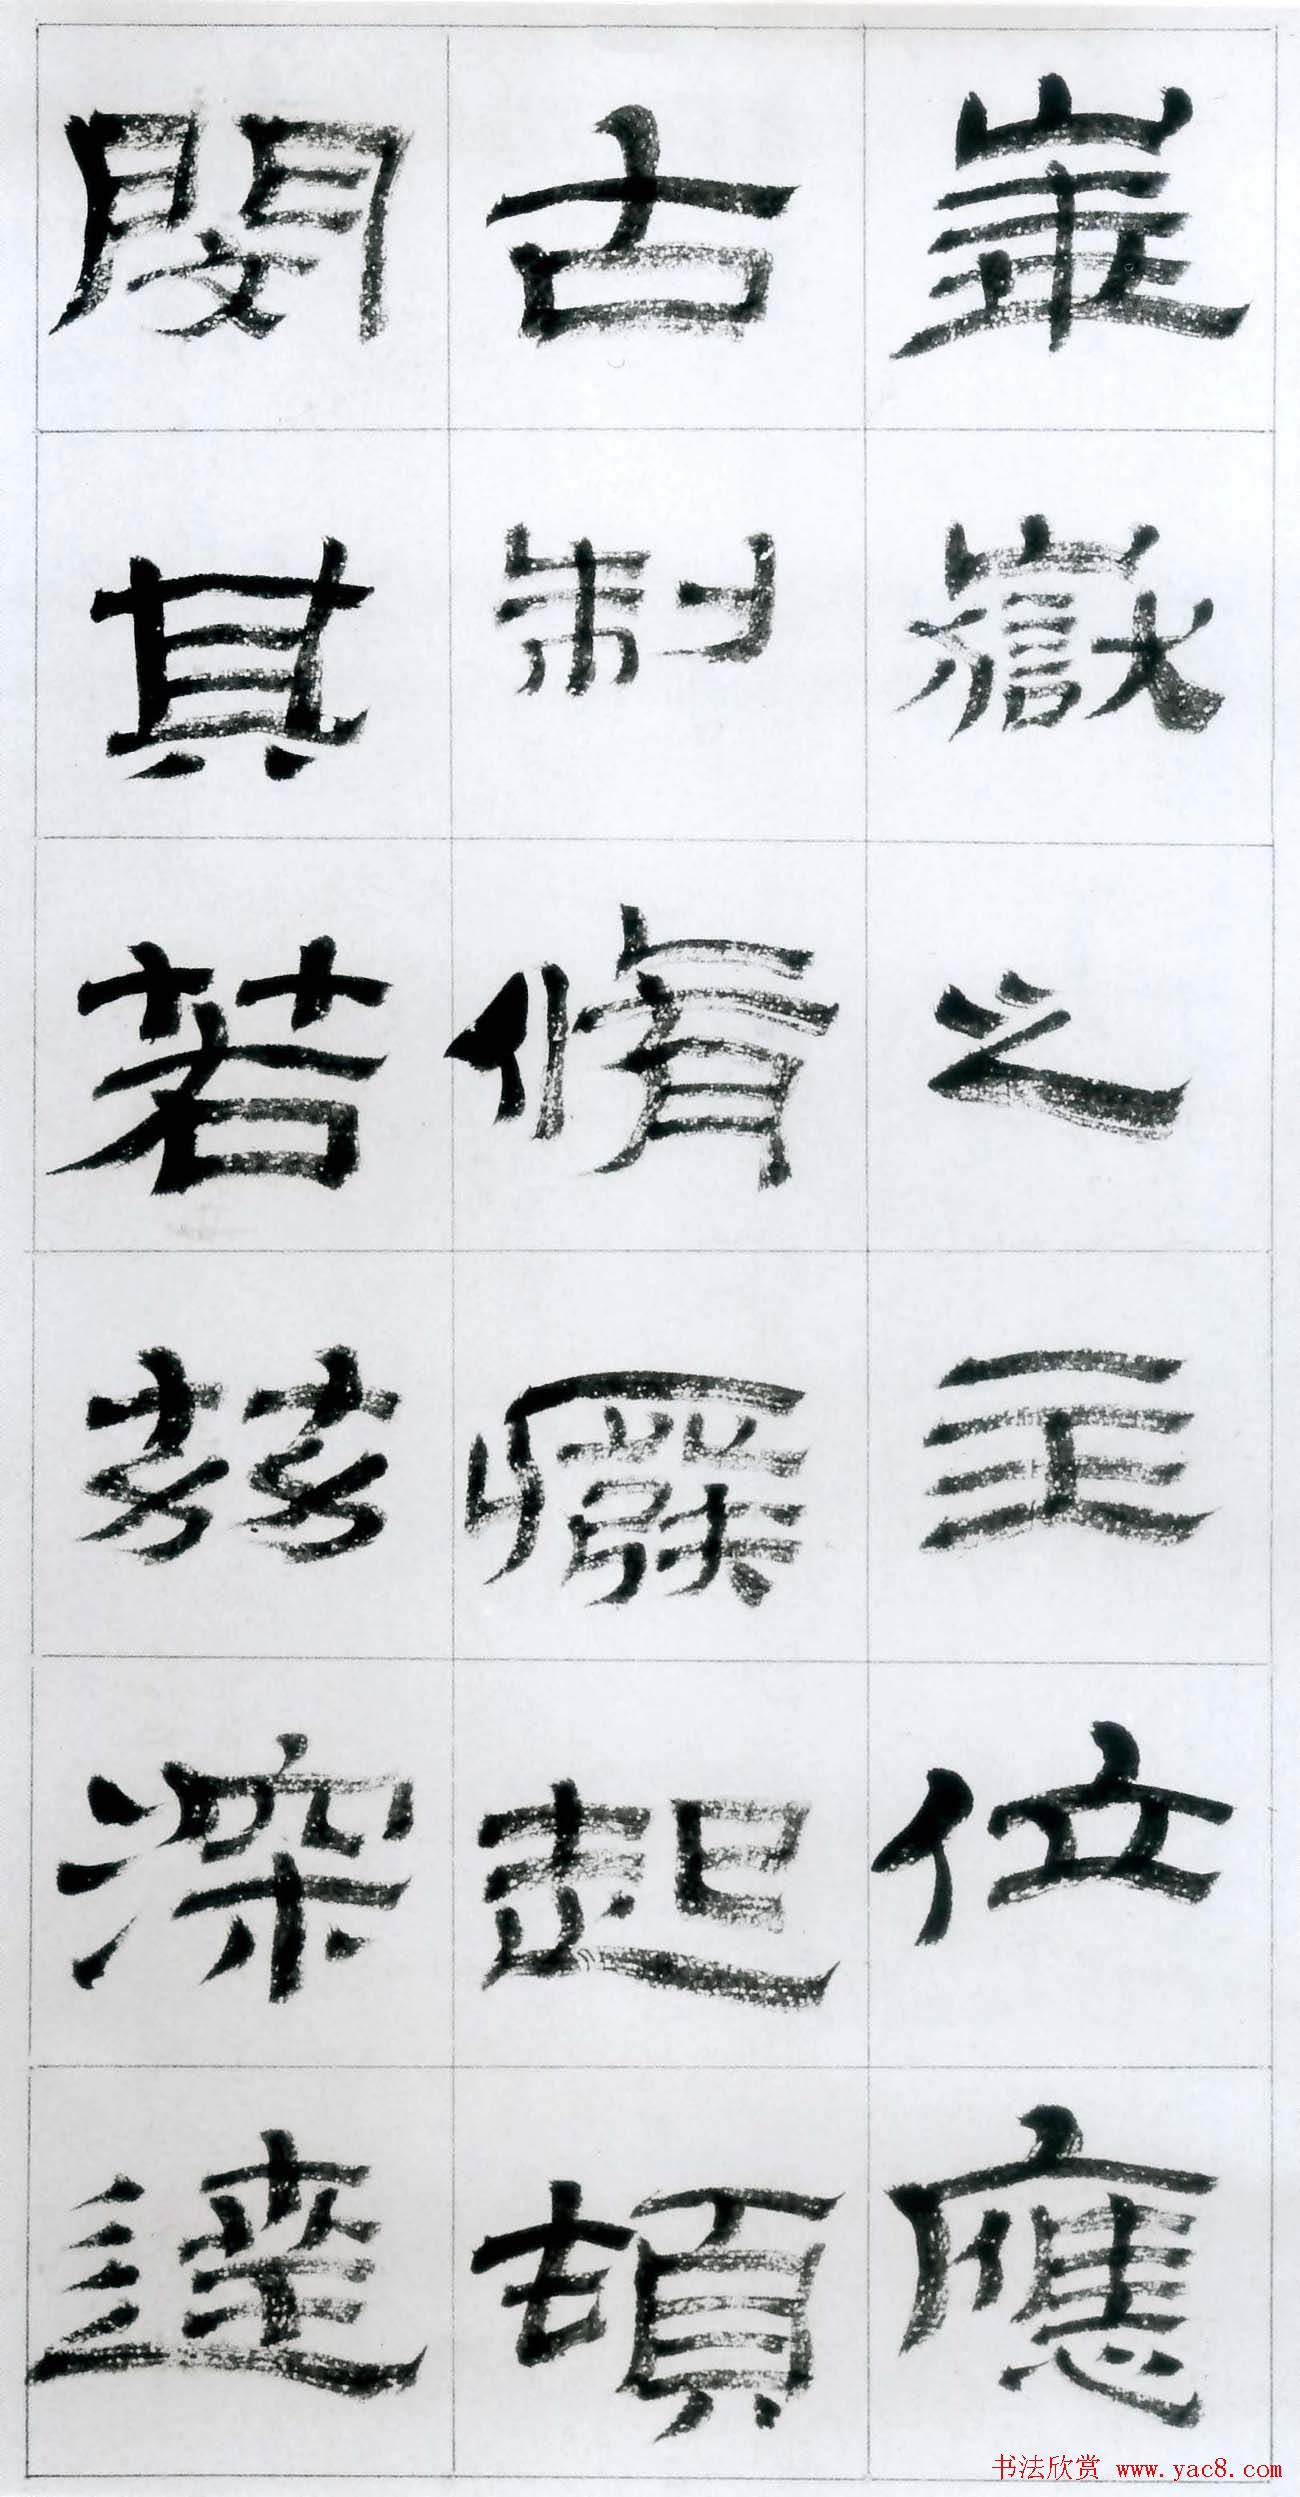 華嶽之主位應
古制脩癈起頓
閔其若茲深達
书法欣赏 www.yac8.com